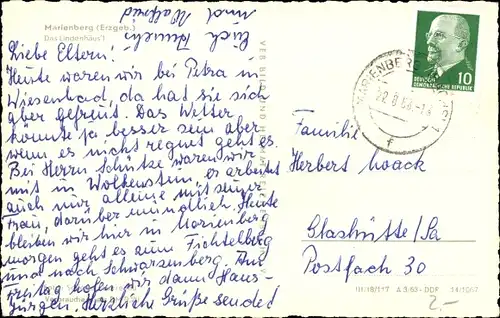 Marienberg (Erzgeb.)
Das Lindenhäus'l
Euch Ruth
und Walfried
Liebe Eltern!
Heute waren wir bei Petra in
Wiesenbad, da hat sie sich
aber gefreut. Das Wetter
könnte ja besser sein aber
wenn es nicht regnet geht es.
Bei Herrn Schütze waren wir
mit in Wolkenstein, er arbeitet
auch nur alleine mit seiner
Frau, darüber mündlich. Heute
bleiben wir hier in Marienberg
morgen geht es zum Fichtelberg
und nach Schwarzenberg. Am
Freitag hofen wir dann Haus-
Herzliche Grüße sendet
DEUTSCHE
DEMOKRATISCHE REPUBLIK
10
MARIENBERG
Familie
Herbert
Glashütte/Sa
Postfach 30
A 3/63 - DDR 14/10/67
2.-